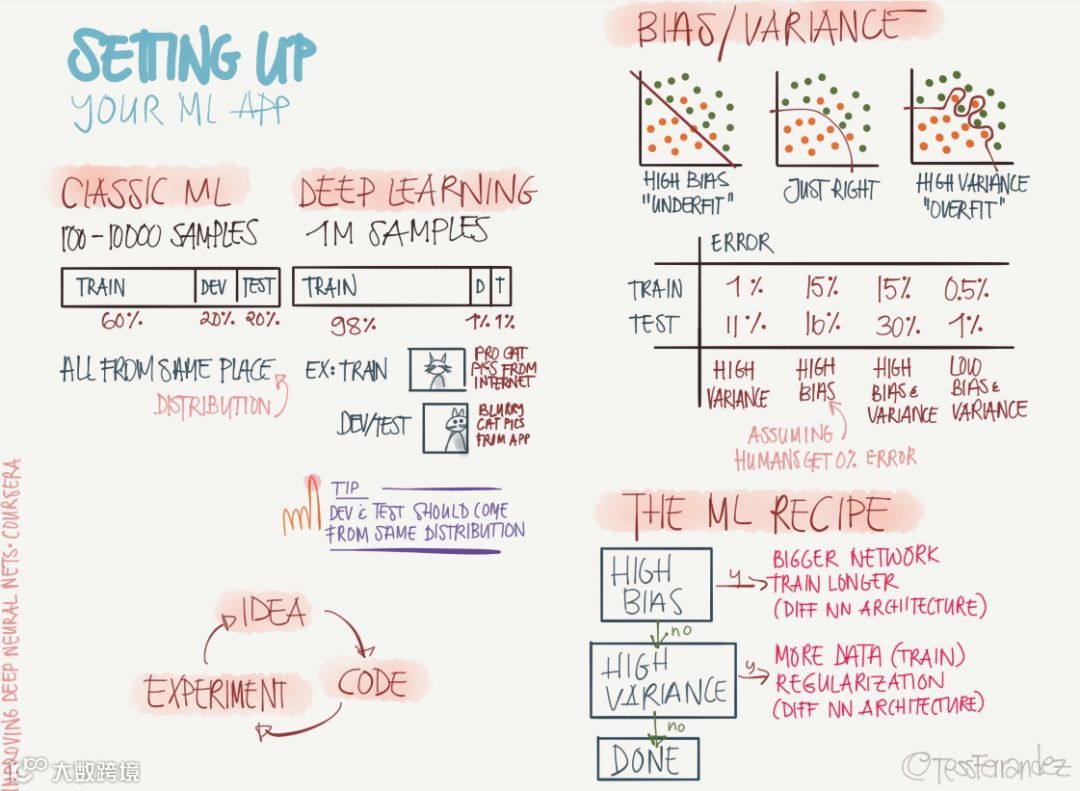 SETTING UP
YOUR ML APP
CLASSIC ML
100-10000 SAMPLES
TRAIN DEV TEST
60% 20% 20%
ALL FROM SAME PLACE
DISTRIBUTION
DEEP LEARNING
1M SAMPLES
TRAIN D T
98% 1% 1%
EX: TRAIN
PRO CAT
PICS FROM
INTERNET
DEV/TEST
BLURRY
CAT PICS
FROM APP
TIP
DEV & TEST SHOULD COME
FROM SAME DISTRIBUTION
IDEA
CODE
EXPERIMENT
BIAS/VARIANCE
HIGH BIAS
"UNDERFIT"
JUST RIGHT
HIGH VARIANCE
"OVERFIT"
ERROR
TRAIN 1% 15% 15% 0.5%
TEST 11% 16% 30% 1%
HIGH
VARIANCE
HIGH
BIAS
HIGH
BIAS &
VARIANCE
LOW
BIAS &
VARIANCE
ASSUMING
HUMANS GET 0% ERROR
THE ML RECIPE
HIGH
BIAS
Y
BIGGER NETWORK
TRAIN LONGER
(DIFF NN ARCHITECTURE)
no
HIGH
VARIANCE
Y
MORE DATA (TRAIN)
REGULARIZATION
(DIFF NN ARCHITECTURE)
no
DONE
IMPROVING DEEP NEURAL NETS · COURSERA
大数跨境
©TessFerrandez